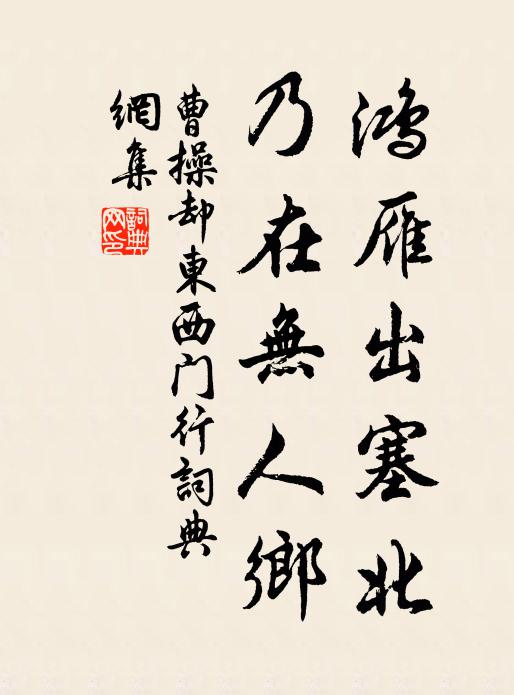 鴻雁出塞北
乃在無人鄉
曹操却東西门行詞典
網集
詞典网印